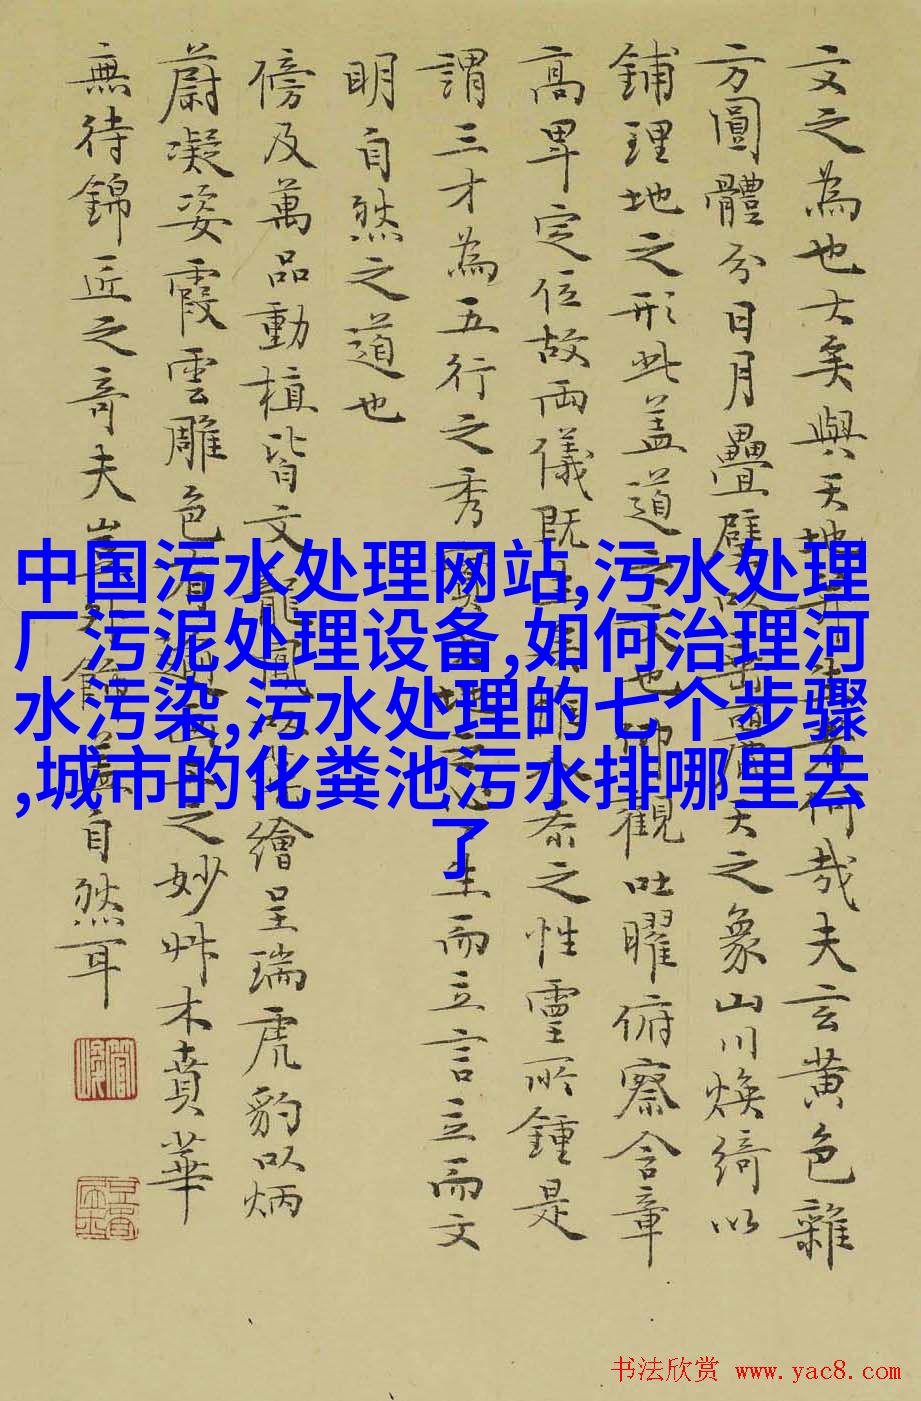 文之為也大矣與天地
哉夫玄黄色雜
方圓體分日月疊璧以
天之象山川煥綺以
鋪理地之形此盖道之文也仰觀吐曜俯察含章
高卑定位故兩儀既生
之性靈所鍾是
謂三才為五行之秀實天地
生而立言立而文
明自然之道也
傍及萬品動植皆文龍鳳以
繪呈瑞虎豹以炳
蔚凝姿霞雲雕色有
之妙艸木賁華
無待錦匠之奇夫豈外飾盖自然耳
中国污水处理网站,污水处理
厂污泥处理设备,如何治理河
水污染,污水处理的七个步骤
,城市的化粪池污水排哪里去
了
书法欣赏 www.yac8.com